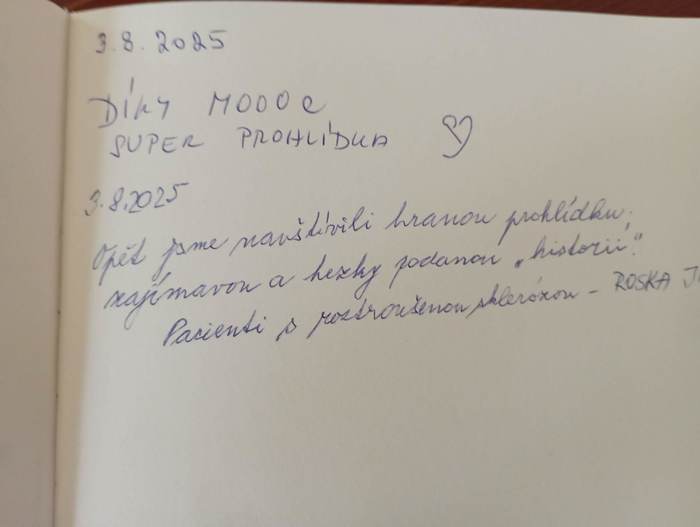 3.8.2025
DÍKY MOOOC
SUPER PROHLÍDKA
3.8.2025
Opět jsme navštívili hranou prohlídku,
zajímavou a hezky podanou „historii".
Pacienti s roztroušenou sklerózou - ROSKA